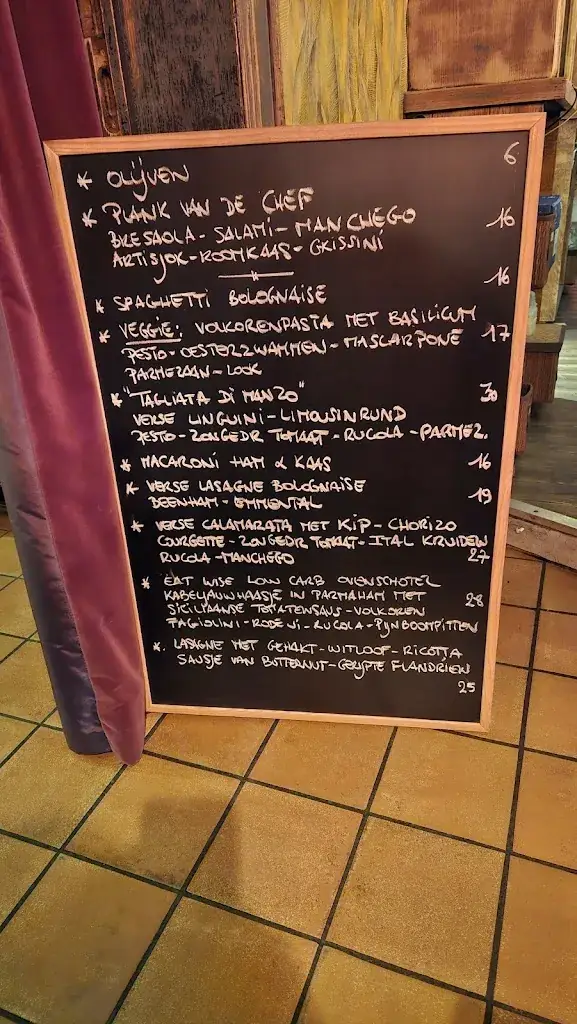 * OLIJVEN 6
* PLANK VAN DE CHEF
BRESAOLA - SALAMI - MANCHEGO 16
ARTISJOK - ROOMKAAS - GRISSINI
* SPAGHETTI BOLOGNAISE 16
* VEGGIE: VOLKORENPASTA MET BASILICUM
PESTO - OESTERZWAMMEN - MASCARPONE 17
PARMEZAAN - LOOK
* "TAGLIATA DI MANZO" 30
VERSE LINGUINI - LIMOUSINRUND
PESTO - ZONGEDR TOMAAT - RUCOLA - PARMEZ.
* MACARONI HAM & KAAS 16
* VERSE LASAGNE BOLOGNAISE 19
BEENHAM - EMMENTAL
* VERSE CALAMARATA MET KIP - CHORIZO
COURGETTE - ZONGEDR TOMAAT - ITAL KRUIDEN
RUCOLA - MANCHEGO 27
* EAT WISE LOW CARB OVENSCHOTEL
KABELJAUWHAASJE IN PARMAHAM MET 28
SICILIAANSE TOMATENSAUS - VOLKOREN
TAGIOLINI - RODE UI - RUCOLA - PIJNBOOMPITTEN
*. LASAGNE MET GEHAKT - WITLOOF - RICOTTA
SAUSJE VAN BUTTERNUT - GERIJPTE FLANDRIEN
25